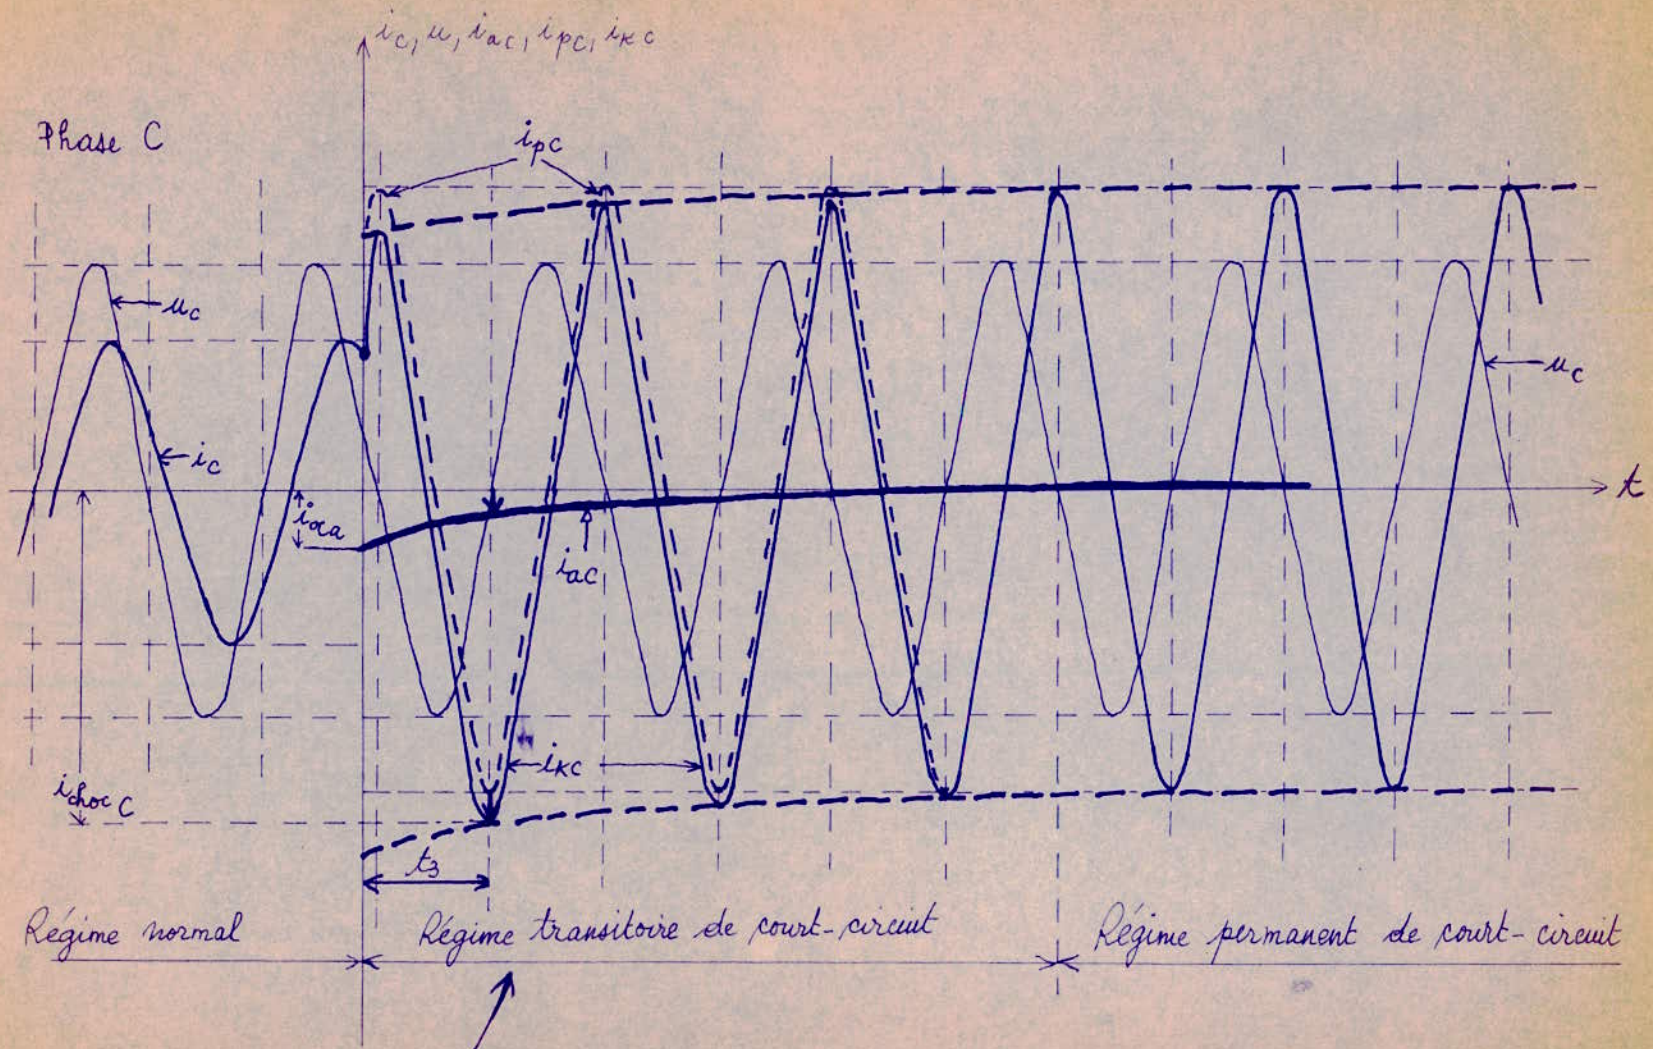 i_c, u, i_ac, i_pc, i_kc
Phase C
i_pc
u_c
u_c
i_c
t
i_αa
i_ac
i_kc
i_choc C
t_3
Régime normal
Régime transitoire de court-circuit
Régime permanent de court-circuit